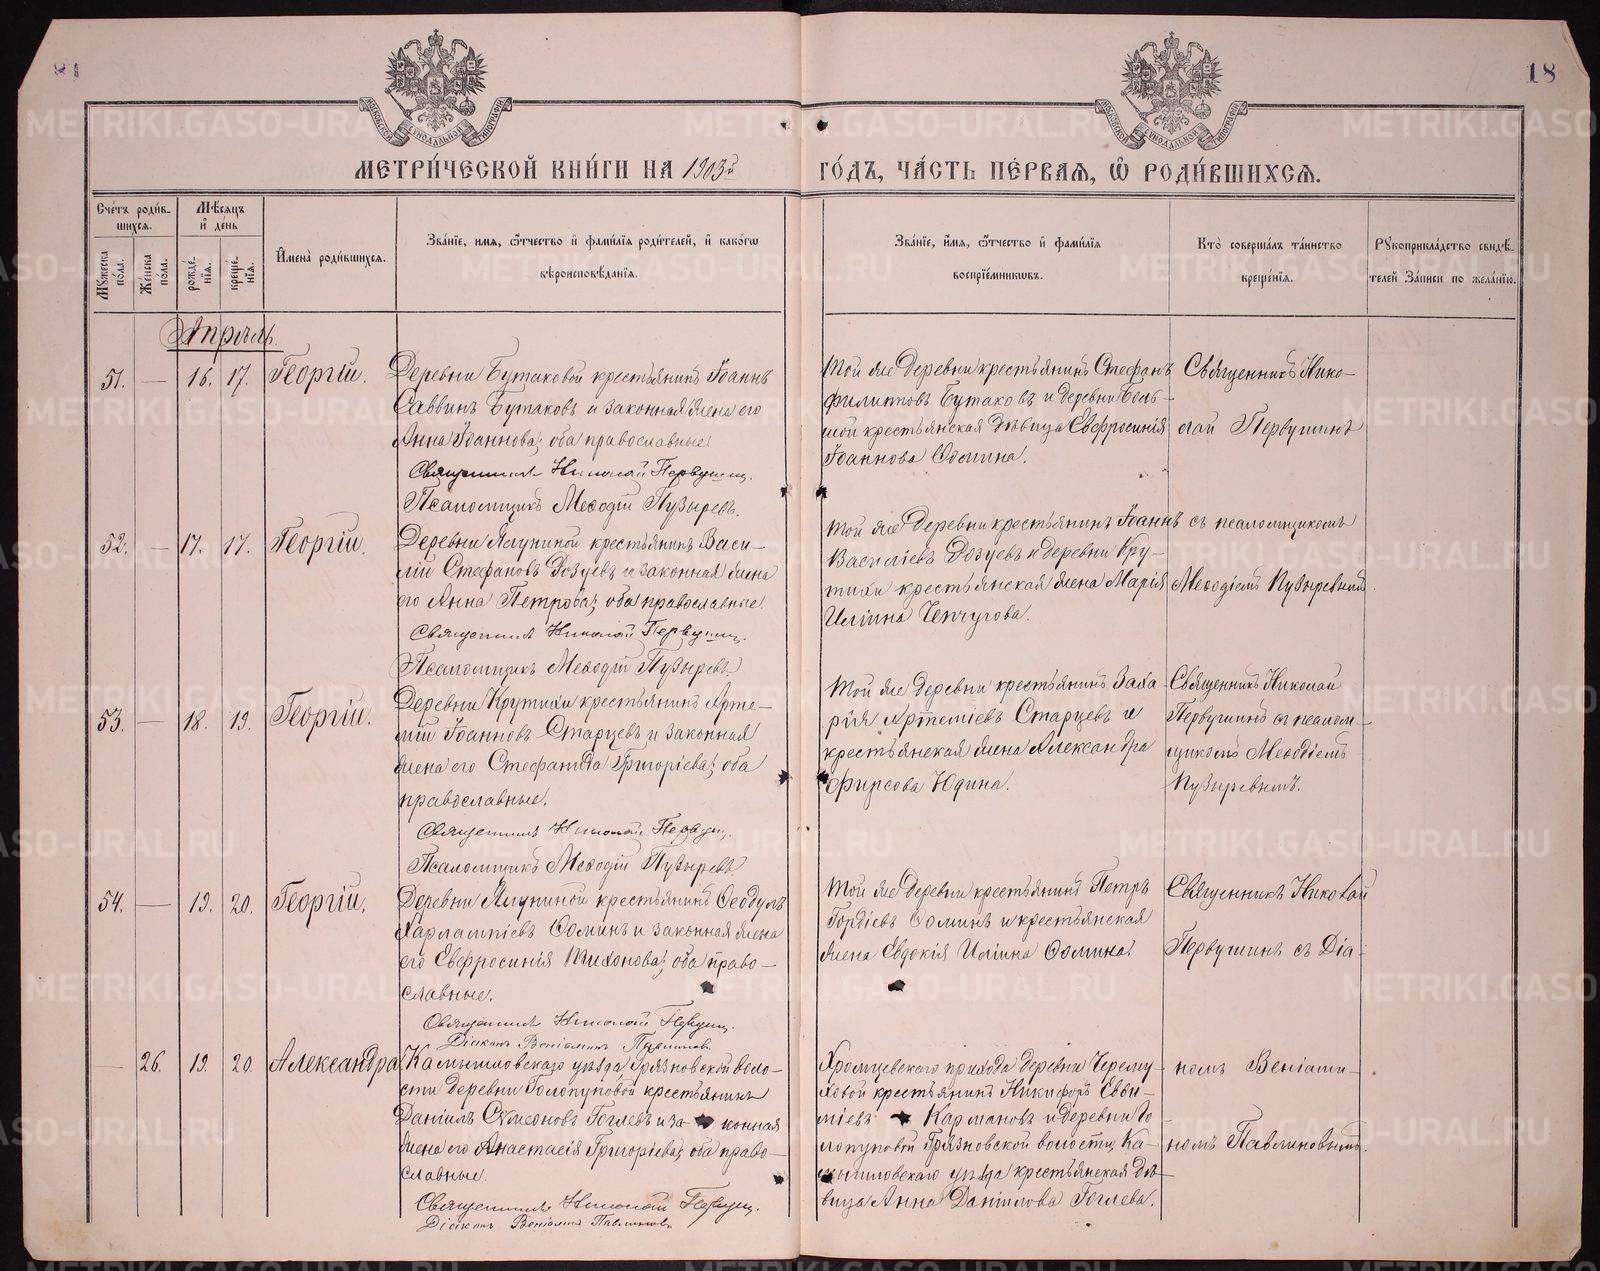 18
МОСКОВСКОЙ СѴНОДАЛЬНОЙ ТИПОГРАФІИ
МЕТРИ́ЧЕСКОЙ КНИ́ГИ НА 1903й
ГО́ДЪ, ЧА́СТЬ ПЕ́РВАЯ, Ѽ РОДИ́ВШИХСЯ.
Сче́тъ роди́в-
шихся.
Мѣ́сяцъ
и де́нь
Мꙋ́жеска по́ла.
Же́нска по́ла.
рожде́-
нїя.
креще́-
нїя.
И҆мена̀ роди́вшихся.
Зва́нїе, имя, ѻ҆́тчество и҆ фами́лїя роди́телей, и҆ како́гѡ
вѣроисповѣ́данїя.
Зва́нїе, и҆́мя, ѻ҆́тчество и҆ фами́лїя
воспрїе́мникѡвъ.
Кто̀ соверша́лъ та́инство
креще́нїя.
Рꙋкоприкла́дство свидѣ́-
телей За́писи по жела́нїю.
Апрѣль.
51. — 16. 17. Георгій.
Деревни Бутаковой крестьянинъ Іоаннъ
Саввинъ Бутаковъ и законная жена его
Анна Іоаннова; оба православные.
Священникъ Николай Первушин.
Псаломщикъ Меѳодій Пузыревъ.
Той же деревни крестьянинъ Стефанъ
Филипповъ Бутаковъ и деревни Боль-
шой крестьянская дѣвица Евфросинія
Іоаннова Ѳомина.
Священникъ Нико-
лай Первушинъ
52. — 17. 17. Георгій.
Деревни Ялуниной крестьянинъ Васи-
лій Стефановъ Дозуевъ и законная жена
его Анна Петрова; оба православные.
Священникъ Николай Первушин.
Псаломщикъ Меѳодій Пузыревъ
Той же деревни крестьянинъ Іоаннъ
Василіевъ Дозуевъ и деревни Кру-
тихи крестьянская жена Марія
Иліина Чепчугова.
съ псаломщикомъ
Меѳодіемъ Пузыревымъ.
53. — 18. 19. Георгій.
Деревни Крутихи крестьянинъ Арте-
мій Іоанновъ Старцевъ и законная
жена его Стефанида Григоріева; оба
православные.
Священникъ Николай Первуш.
Псаломщикъ Меѳодій Пузыревъ
Той же деревни крестьянинъ Заха-
рія Артеміевъ Старцевъ и
крестьянская жена Александра
Фирсова Юдина.
Священникъ Николай
Первушинъ съ псалом-
щикомъ Меѳодіемъ
Пузыревымъ.
54. — 19. 20. Георгій.
Деревни Ялуниной крестьянинъ Ѳеодулъ
Харлампіевъ Ѳоминъ и законная жена
его Евфросинія Тихонова; оба право-
славные.
Священникъ Николай Первуш.
Діаконъ Веніаминъ Павлиновъ
Той же деревни крестьянинъ Петръ
Гордіевъ Ѳоминъ и крестьянская
жена Евдокія Иліина Ѳомина.
Священникъ Николай
Первушинъ съ Діа-
— 26. 19. 20. Александра
Камышловскаго уѣзда Грязновской воло-
сти деревни Голопуповой крестьянинъ
Даніилъ Симеоновъ Гоглевъ и законная
жена его Анастасія Григоріева; оба право-
славные.
Священникъ Николай Первуш.
Діаконъ Веніаминъ Павлиновъ
Хромцевскаго прихода деревни Черему-
ховой крестьянинъ Никифоръ Евѳи-
міевъ Кармановъ и деревни Го-
лопуповой Грязновской волости, Ка-
мышловскаго уѣзда крестьянская дѣ-
вица Анна Даніилова Гоглева.
номъ Веніами-
номъ Павлиновымъ.
METRIKI.GASO-URAL.RU